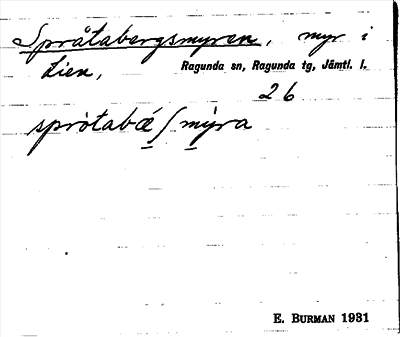 Språtabergsmyren, myr i
Lien, Ragunda sn, Ragunda tg, Jämtl. l.
26
spròtabæ̱ʃmỳ̱ra
E. BURMAN 1931